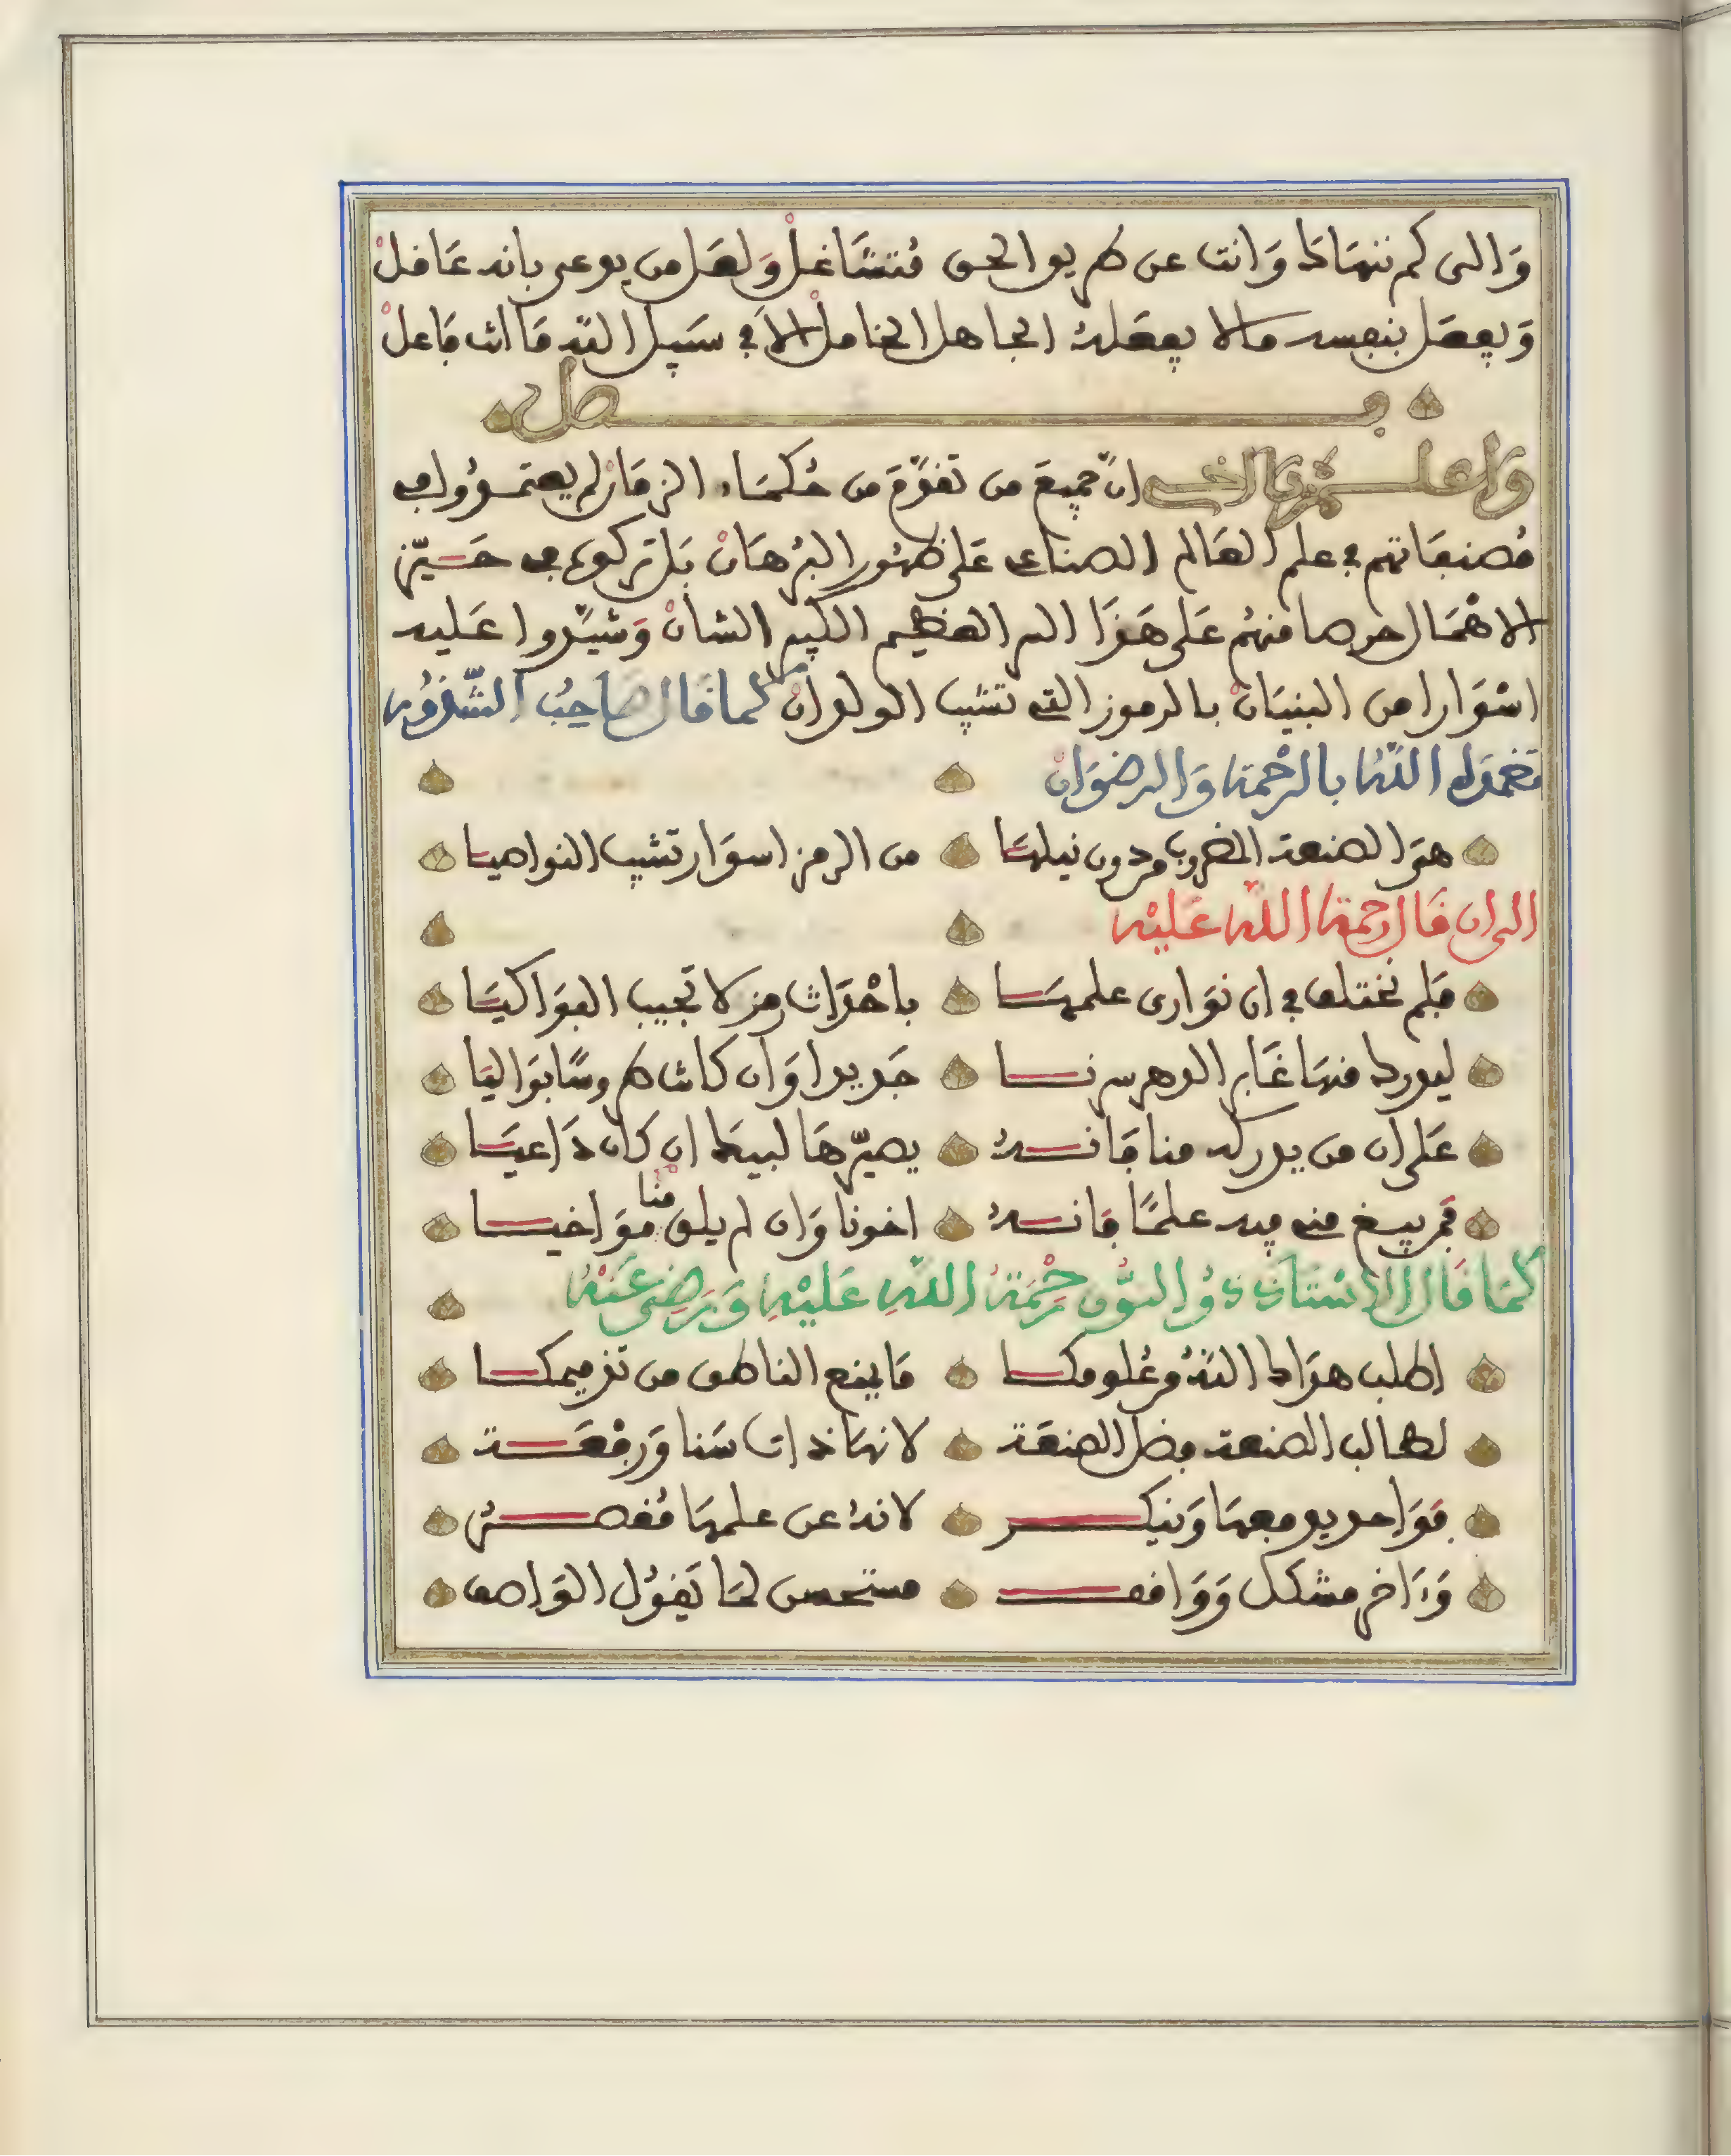 وَالى كم ننهَاكَ وَانت عن طريق الحق مُتشَاغلْ وَلعَل من يدعى بانه عَاقلْ
وَيفعَل بنفسه مالا يفعَلهُ الجاهل الخاملْ الاَ في سَبيل الله مَا انت فَاعلْ
فصل
وَاعلم يَا اخى انّ جميعَ من تقدّمَ من حُكمَاء الزمَانْ لم يعتمدُوا في
مُصنفاتهم في علم العَالم الصناعى عَلى ظهُور البُرهَانْ بَل تركوه في حَيّز
الاهْمَال حرصا منهُم عَلى هَذَا السر العَظيم الكبير الشانْ وَشيّدوا عَليه
اسْوَارا من البنيَانْ بالرموز التي تشيب الولدانْ كما قَال صَاحبُ الشّذُور
تغمدَه اللّهُ بالرّحْمة وَالرضوَانْ
هوَ الصنعة المضروب من دون نيلهَا من الرمز اسوَار تشيب النواصيا
الى ان قَال رحمة الله عَليْه
فلم نختلف في ان نوَارى علمهَا باحْدَاث رمز لا تجيب البوَاكيَا
ليدرك منهَا غَابر الدهر سرنا جَديدا وَان كانت طروسًا بوَاليَا
عَلى ان من يدركه منا فَانهُ يصيّرهَا لبيك ان كان دَاعيَا
فمن يبغ منه فيه علمًا فَانهُ اخونا وَان لم يلق منا موَاخيا
كمَا قَال الاسْتاذ ذُو النّون رحْمَةُ اللّهِ عَليْهِ وَرَضِى عَنْهُ
اطلب هدَاك اللهُ من علومكا مَا يمنع الناطق من تزميمكا
لطالب الصنعة فضل الصنعَة لانهَا ذات سَنا وَرفْعَة
فوَاحد يدفعهَا وَينكر لانهُ عن علمهَا مُقصر
وَءَاخر مشكك وَوَاقف مستحسن لمَا يَقوُل الوَاصف